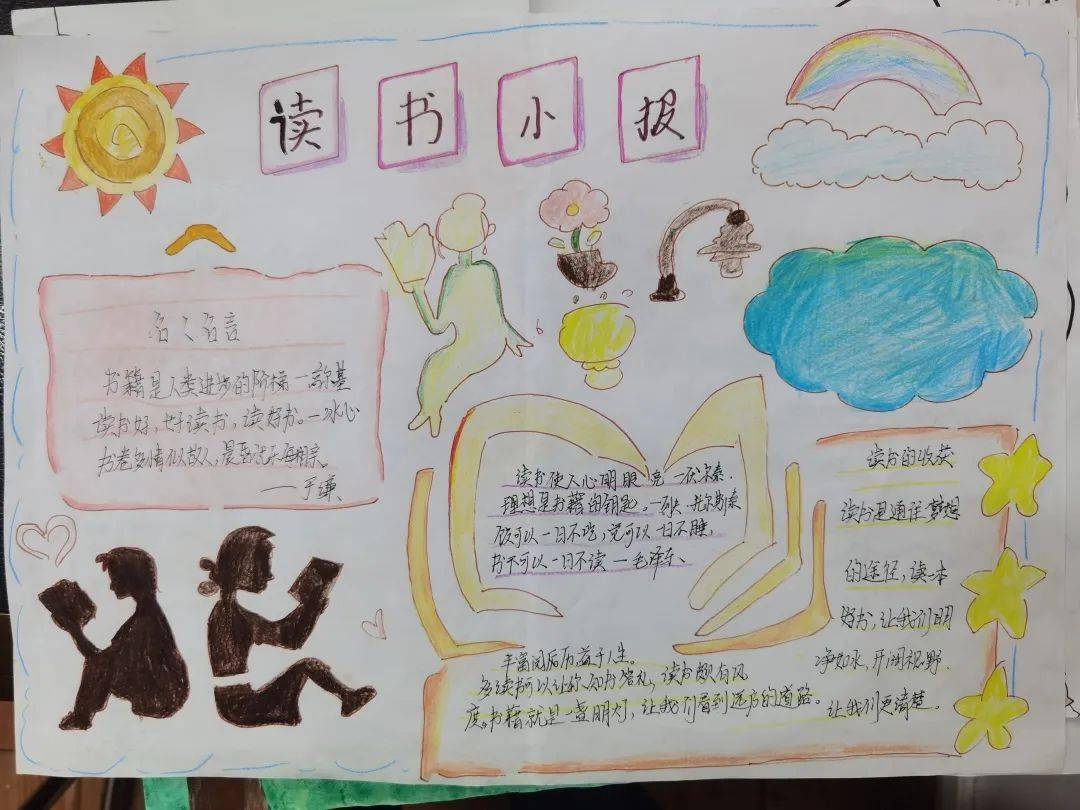 读书小报
名人名言
书籍是人类进步的阶梯 一高尔基
读书好,好读书,读好书。一冰心
书卷多情似故人,晨昏忧乐每相亲。
——于谦
读书使人心明眼亮 一伏尔泰.
理想是书籍的钥匙。一列夫·托尔斯泰
饭可以一日不吃,觉可以一日不睡,
书不可以一日不读 一毛泽东
读书的收获
读书是通往梦想
的途径,读一本
好书,让我们明
净如水,开阔视野.
丰富阅历有益于人生。
多读书可以让你知书达礼,读书颇有风
度。书籍就是一盏明灯,让我们看到远方的道路。让我们更清楚.